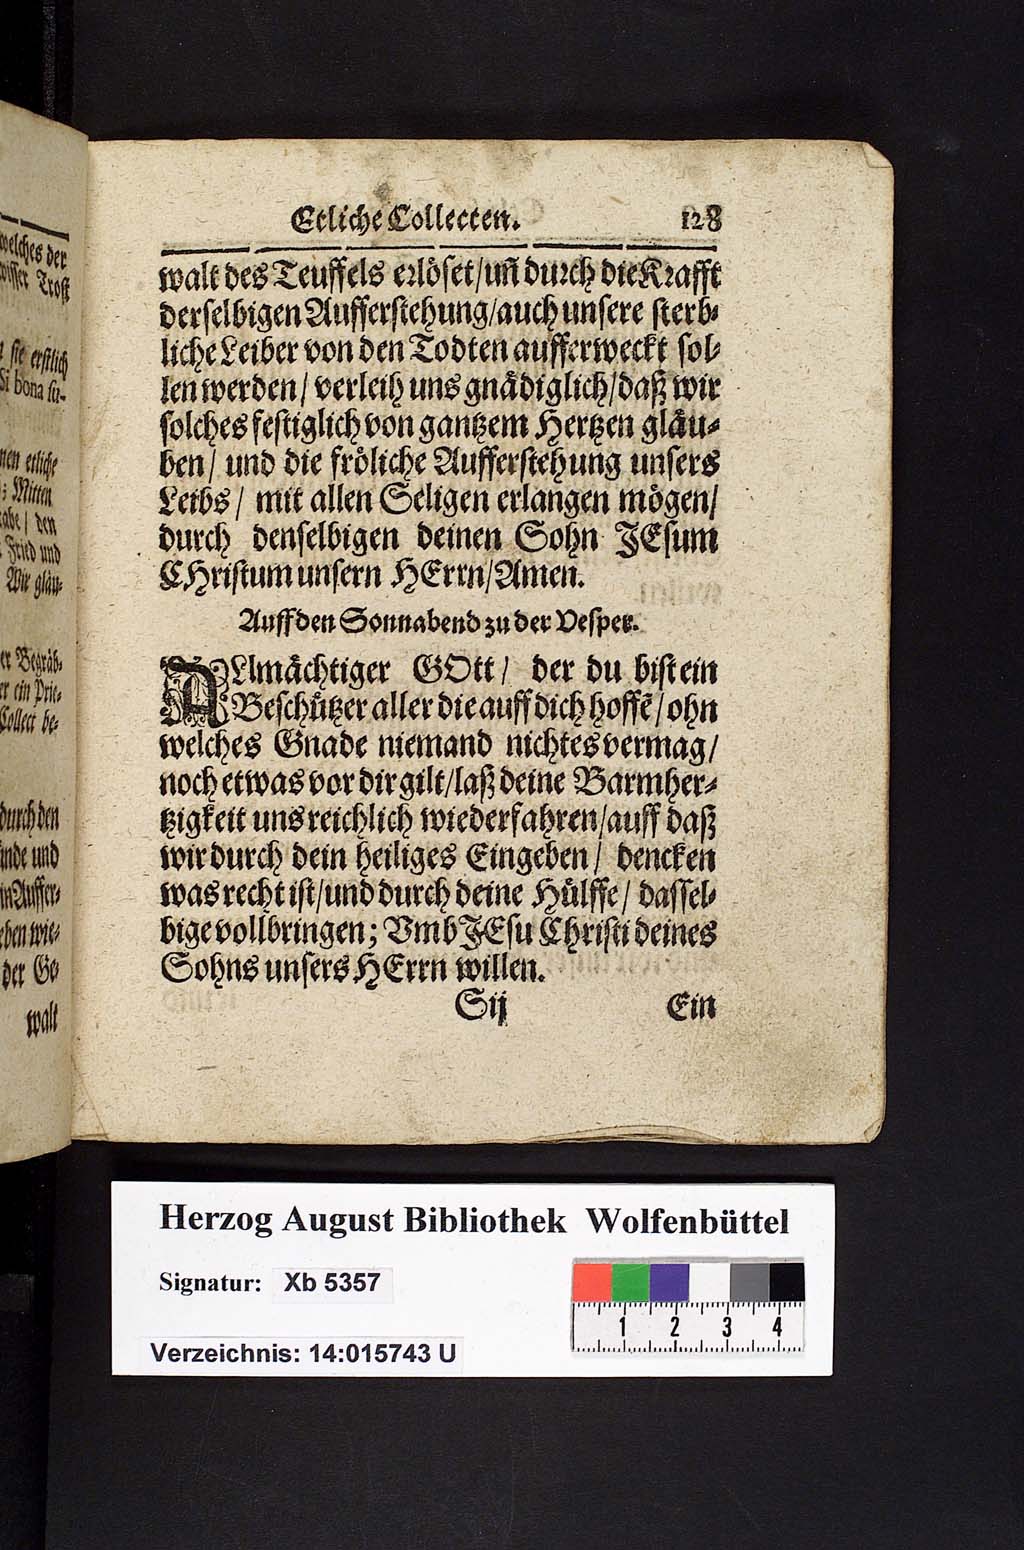 welches der
Trost
sie erstlich
Si bona su-
nen etliche
Mitten
den
Fried und
Wir gläu-
Begräb-
ein Prie-
Collect be-
durch den
und
Auffer-
wie-
der Ge-
walt
Etliche Collecten. 128
walt des Teuffels erlöset/uñ durch die Krafft
derselbigen Aufferstehung/auch unsere sterb-
liche Leiber von den Todten aufferweckt sol-
len werden/ verleih uns gnädiglich/daß wir
solches festiglich von gantzem Hertzen gläu-
ben/ und die fröliche Aufferstehung unsers
Leibs/ mit allen Seligen erlangen mögen/
durch denselbigen deinen Sohn JEsum
CHristum unsern HErrn/Amen.
Auff den Sonnabend zu der Vesper.
ALlmächtiger GOtt/ der du bist ein
Beschützer aller die auff dich hoffē/ohn
welches Gnade niemand nichtes vermag/
noch etwas vor dir gilt/laß deine Barmher-
tzigkeit uns reichlich wiederfahren/auff daß
wir durch dein heiliges Eingeben/ dencken
was recht ist/und durch deine Hülffe/ dassel-
bige vollbringen; Vmb JEsu Christi deines
Sohns unsers HErrn willen.
Sij Ein
Herzog August Bibliothek Wolfenbüttel
Signatur: Xb 5357
Verzeichnis: 14:015743 U
1 2 3 4